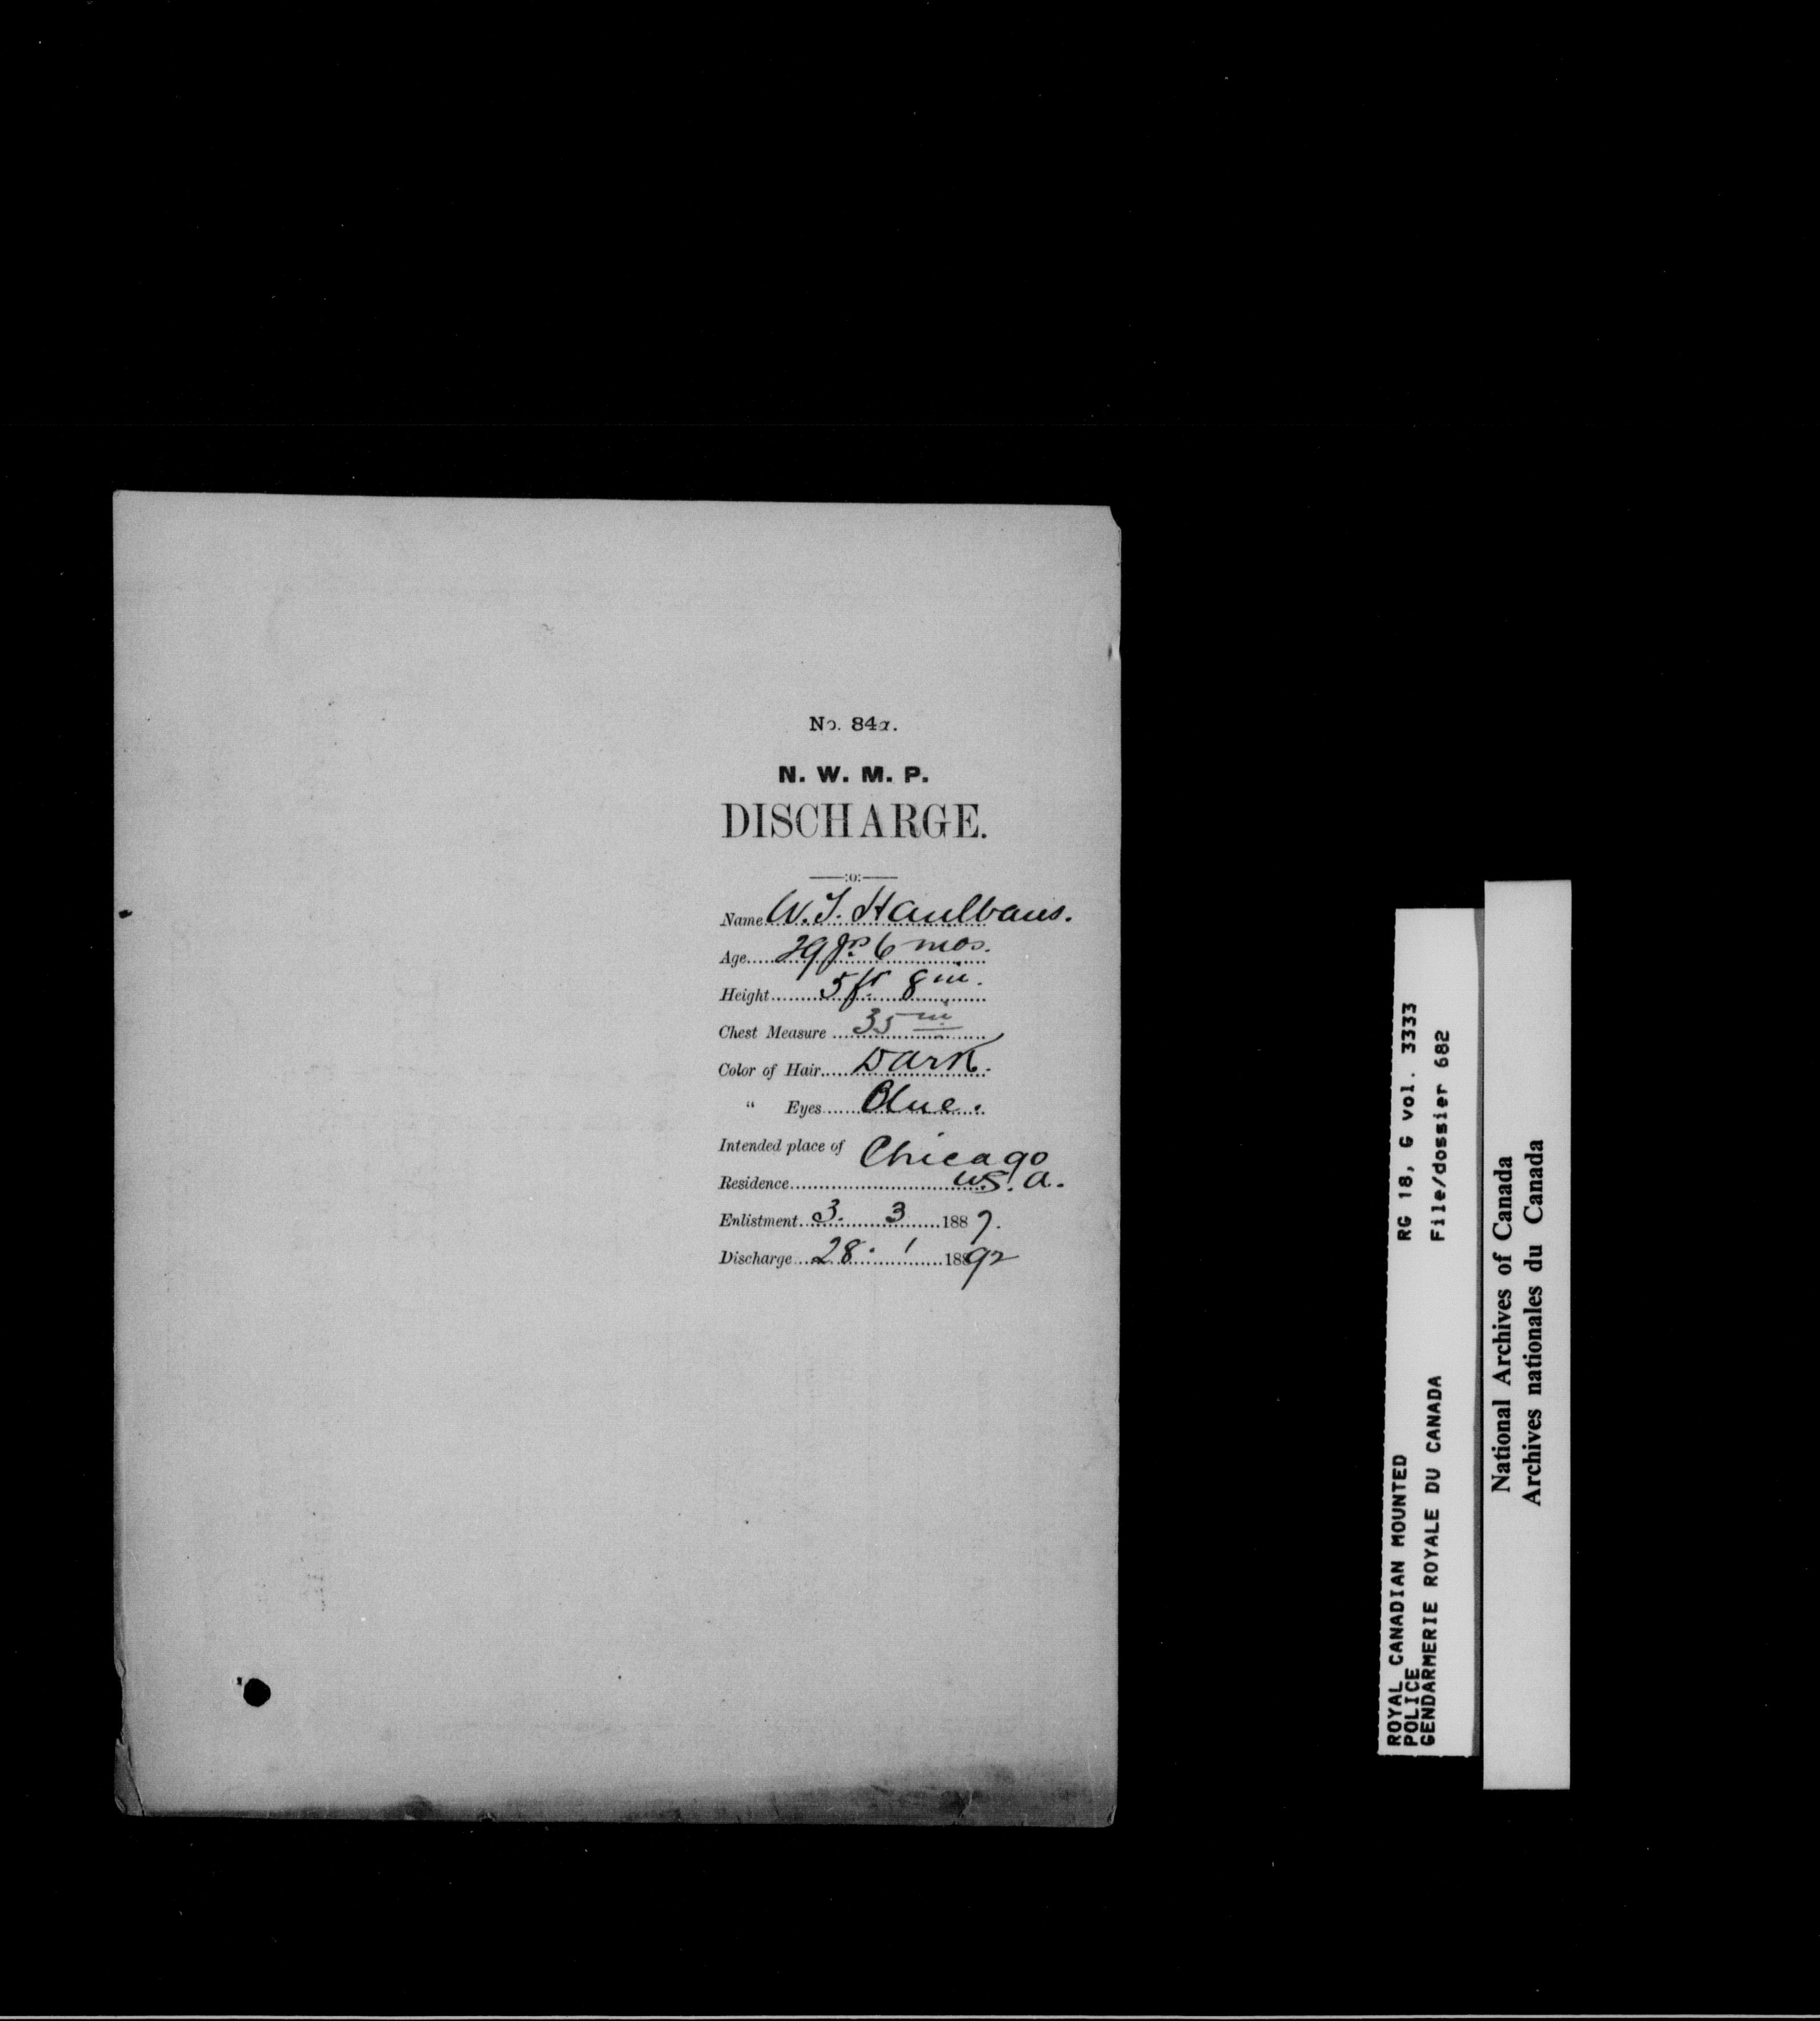 No. 84a.
N. W. M. P.
DISCHARGE.
Name W. T. Haulbaus.
Age 29 yrs 6 mos.
Height 5 ft 8 in.
Chest Measure 35 in
Color of Hair Dark.
" Eyes Blue.
Intended place of Chicago
Residence U.S.A.
Enlistment 3. 3 1887.
Discharge 28. 1 18892
ROYAL CANADIAN MOUNTED RG 18, G vol. 3333
POLICE
GENDARMERIE ROYALE DU CANADA File/dossier 682
National Archives of Canada
Archives nationales du Canada